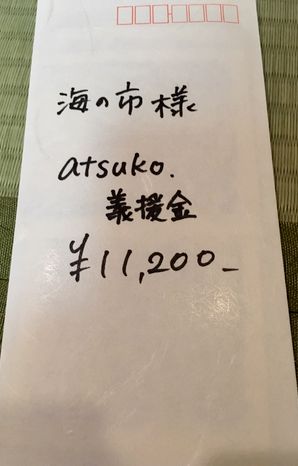 海の市様
atsuko.
義援金
¥11,200-